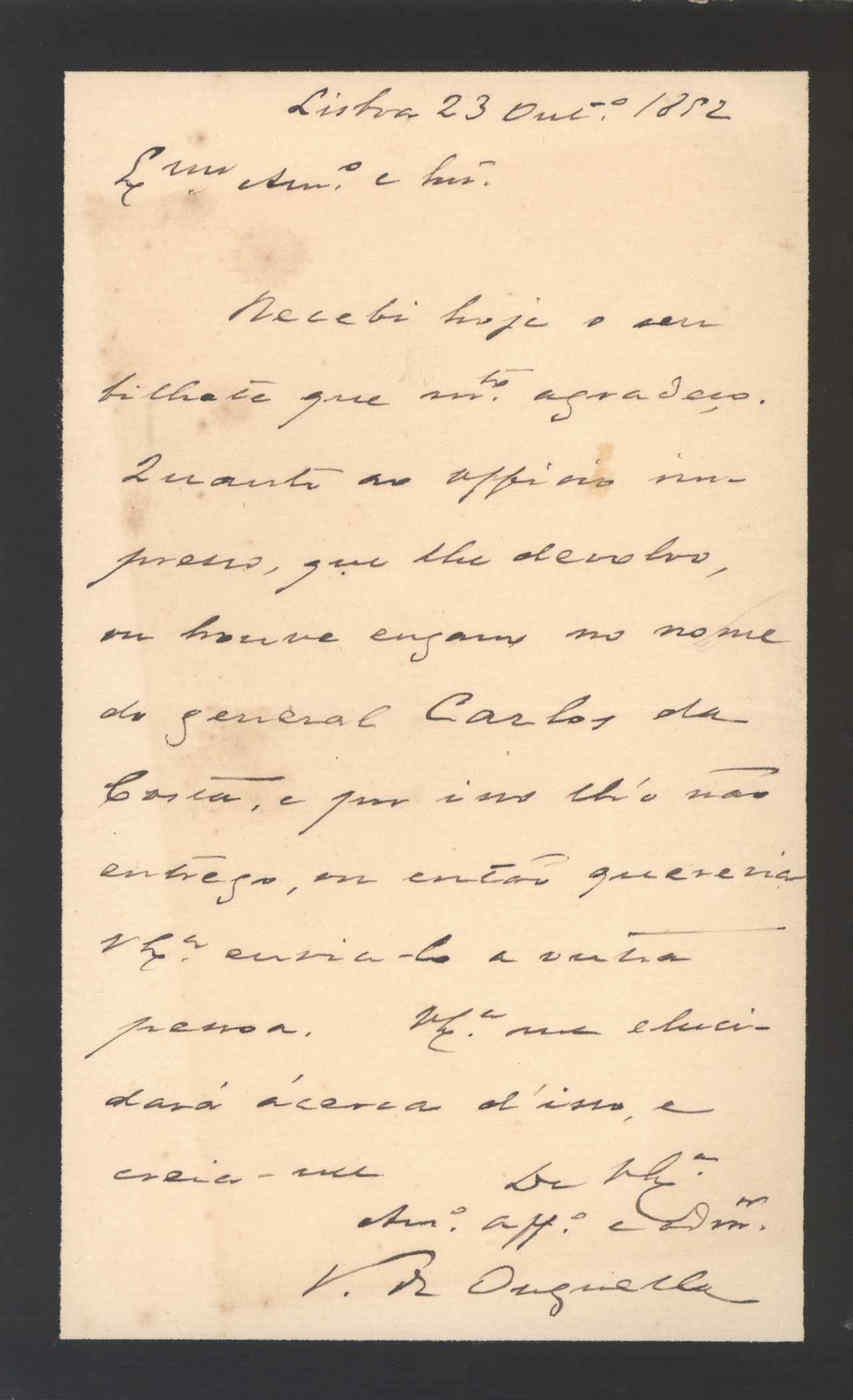 Lisboa 23 Out.º 1892
Ex.mo Am.º e
Recebi hoje o seu
bilhete que m.to agradeço.
Quanto ao officio im-
presso, que lhe devolvo,
ou houve engano no nome
do general Carlos da
Costa, e por isso lh'o não
entrego, ou então quereria
V. Ex.ª envia-lo a outra
pessoa. V. Ex.ª me eluci-
dará ácerca d'isso, e
creia-me De V. Ex.ª
Am.º aff.º e
V. de Ouguella